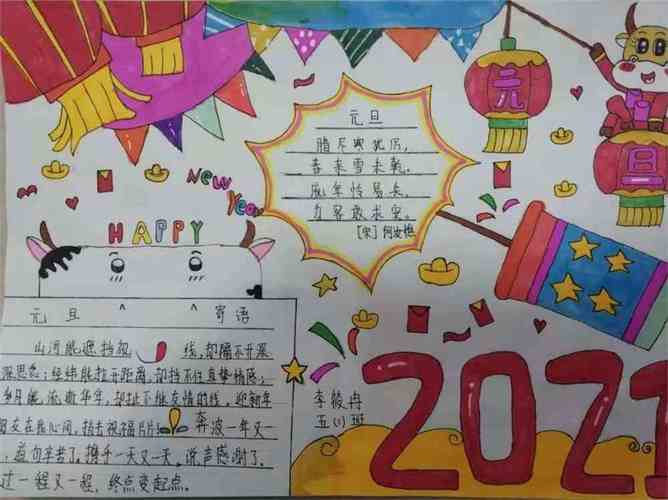 元旦
腊尽寒犹厉,
春来雪未乾。
[宋] 何汝樵
元
旦
New
Year
HAPPY
元旦 寄语
山河能遮挡视 线,却隔不开深
深思念;经纬能拉开距离,却挡不住真挚情感;
岁月能流逝年华,却扯不断友情的线。迎新年
朋友在我心间,敲击祝福片片 奔波一年又一
道句辛苦了。携手一天又一天,说声感谢了。
过一程又一程,终点变起点。
李
五(1)班
2021